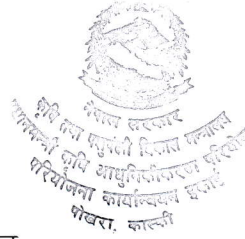 नेपाल सरकार
कृषि तथा पशुपंछी विकास मन्त्रालय
प्रधानमन्त्री कृषि आधुनिकीकरण परियोजना
परियोजना कार्यान्वयन इकाई
पोखरा, कास्की